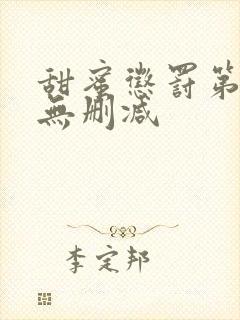 甜蜜懲罰第
無刪减
李定邦